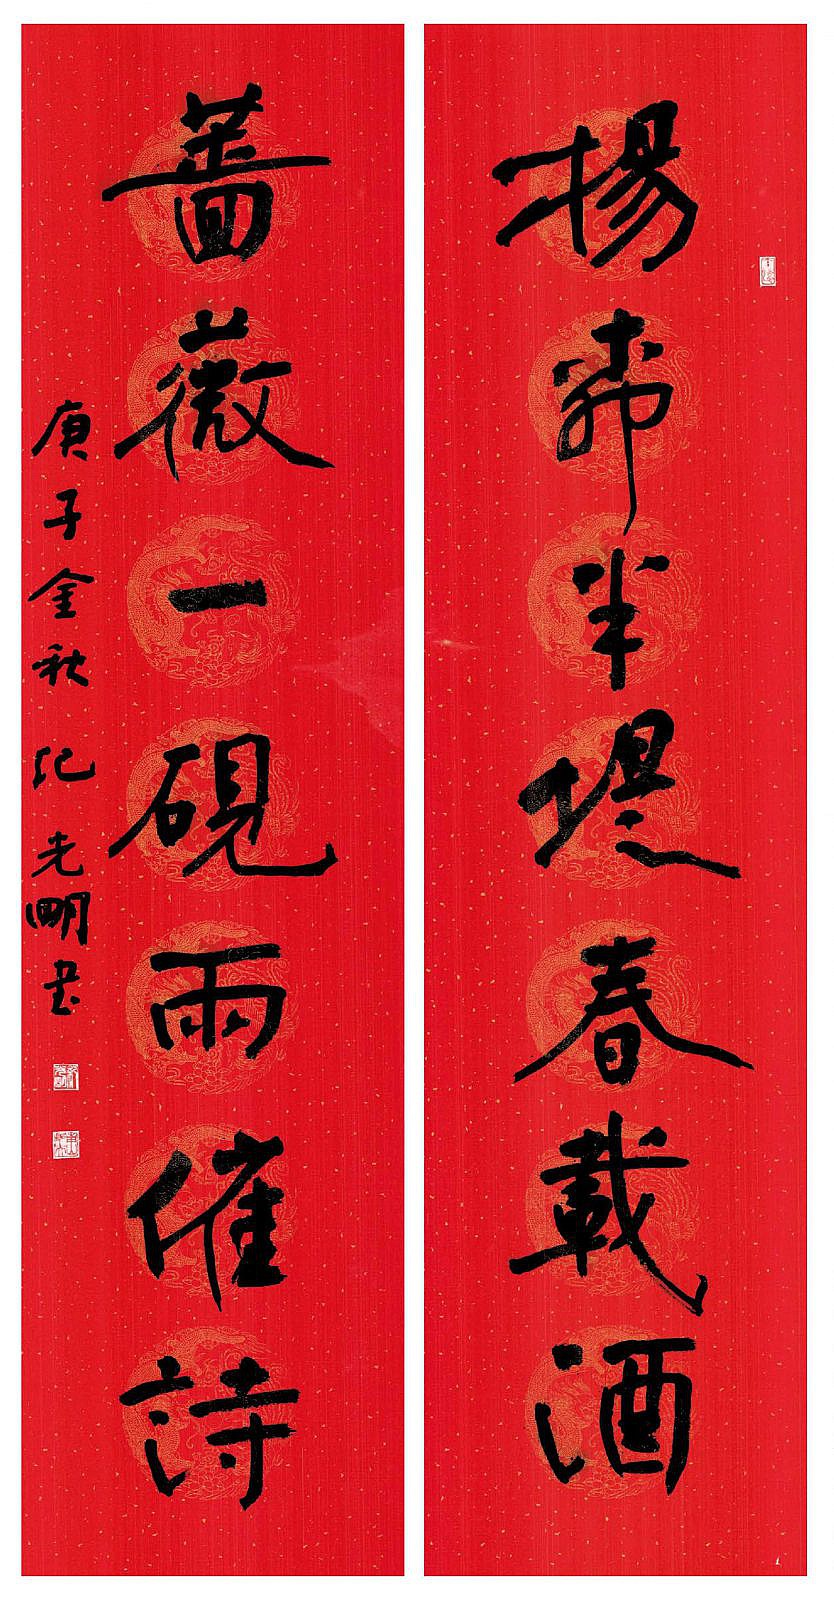 楊柳半堤春載酒
薔薇一硯雨催詩
庚子金秋紀光明书